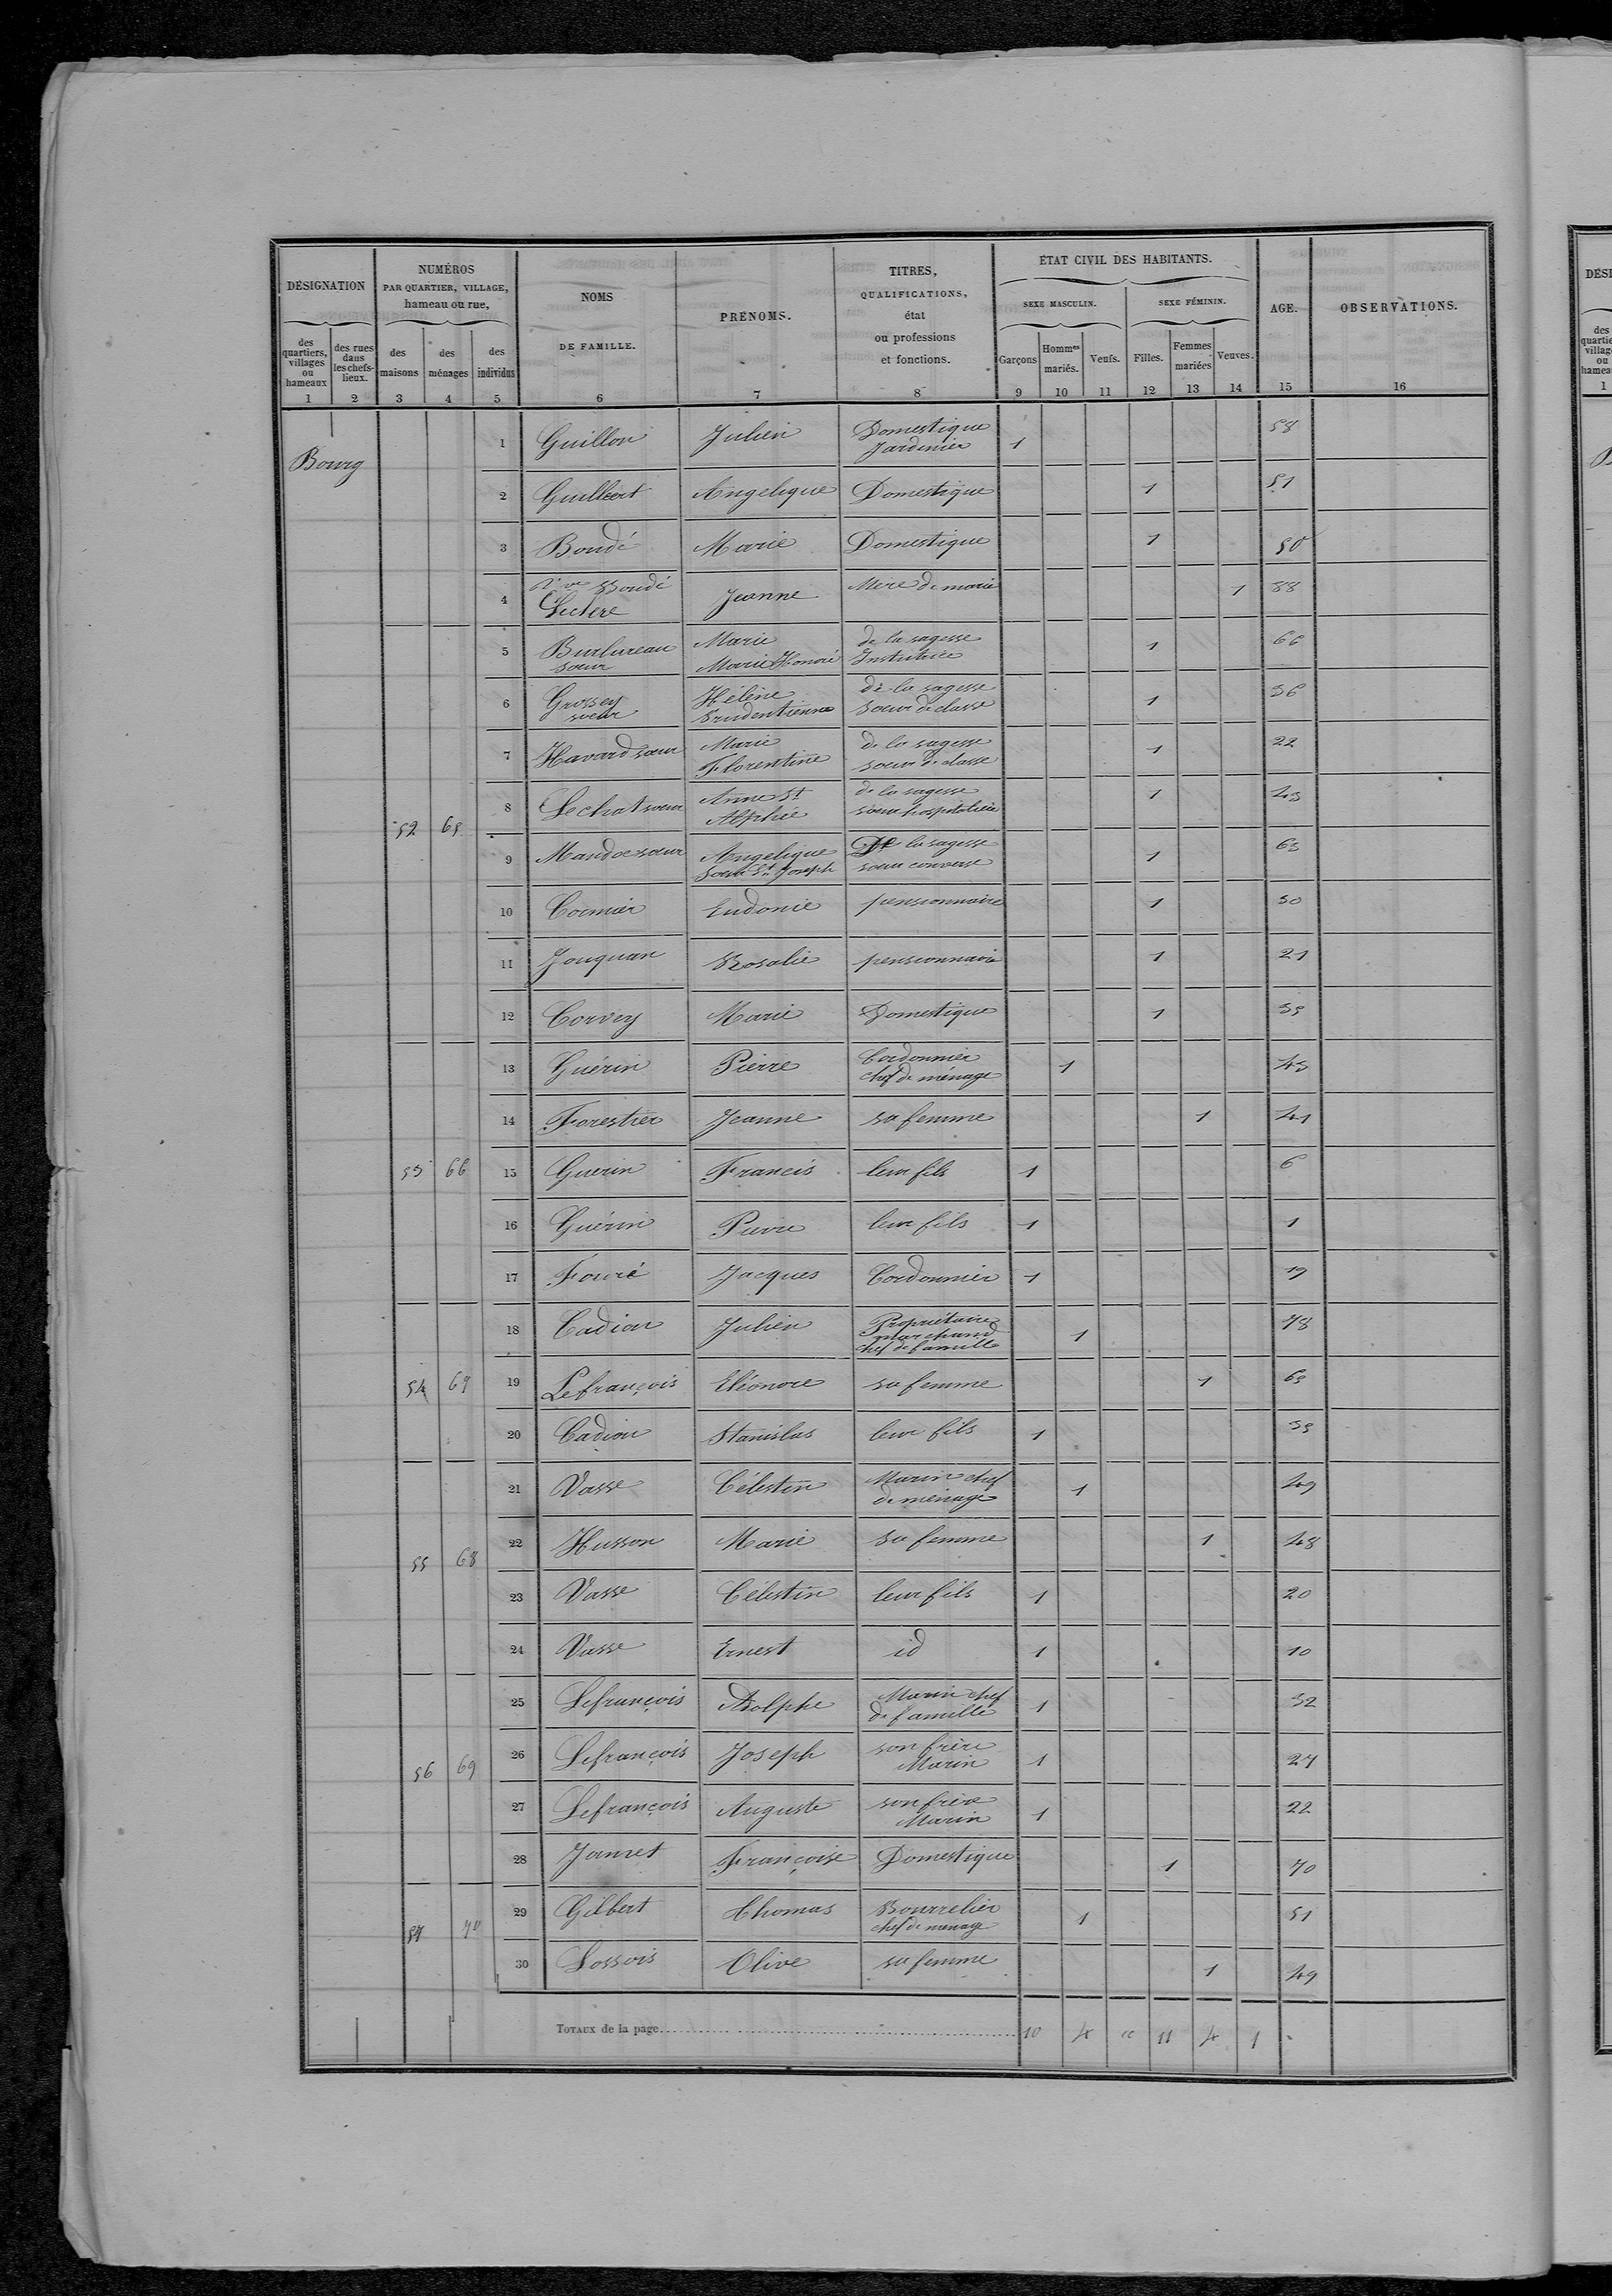 DÉSIGNATION
NUMÉROS
PAR QUARTIER, VILLAGE,
hameau ou rue,
NOMS
DE FAMILLE.
PRÉNOMS.
TITRES,
QUALIFICATIONS,
état
ou professions
et fonctions.
ÉTAT CIVIL DES HABITANTS.
SEXE MASCULIN.
SEXE FÉMININ.
AGE.
OBSERVATIONS.
des quartiers, villages ou hameaux
des rues dans les chefs-lieux.
des maisons
des ménages
des individus
Garçons
Hommes mariés.
Veufs.
Filles.
Femmes mariées
Veuves.
1 2 3 4 5 6 7 8 9 10 11 12 13 14 15 16
Bourg
1 Guillon Julien Domestique Jardinier 1 58
2 Guillbert Angelique Domestique 1 51
3 Boudé Marie Domestique 1 50
4 Vve Boudé Leclere Jeanne Mère de marie 1 88
52 65
5 Burbureau soeur Marie Marie Honoré de la sagesse Institutrice 1 66
6 Grossey soeur Hélène Prudentienne de la sagesse soeur de classe 1 36
7 Havard soeur Marie Florentine de la sagesse soeur de classe 1 22
8 Lechat soeur Anne St Alphée de la sagesse soeur hospitalière 1 43
9 soeur Angelique soeur St Joseph De la sagesse soeur converse 1 63
10 Cormier Eudonie pensionnaire 1 30
11 Jouquan Rosalie pensionnaire 1 21
12 Corvey Marie Domestique 1 35
53 66
13 Guérin Pierre Cordonnier chef de ménage 1 43
14 Forestier Jeanne sa femme 1 41
15 Guerin Francis leur fils 1 6
16 Guérin Pierre leur fils 1 1
17 Fouré Jacques Cordonnier 1 19
54 67
18 Cadiou Julien Propriétaire marchand chef de famille 1 73
19 Lefrançois Eléonore sa femme 1 63
20 Cadiou Stanislas leur fils 1 35
55 68
21 Vasse Célestin Marin chef de ménage 1 49
22 Husson Marie sa femme 1 48
23 Vasse Célestin leur fils 1 20
24 Vasse Ernest id 1 10
56 69
25 Lefrançois Adolphe Marin chef de famille 1 32
26 Lefrançois Joseph son frère Marin 1 27
27 Lefrançois Auguste son frère Marin 1 22
28 Jamet Françoise Domestique 1 70
57 70
29 Gilbert Thomas Bourrelier chef de ménage 1 51
30 Lossois Olive sa femme 1 49
TOTAUX de la page 10 4 " 11 4 1